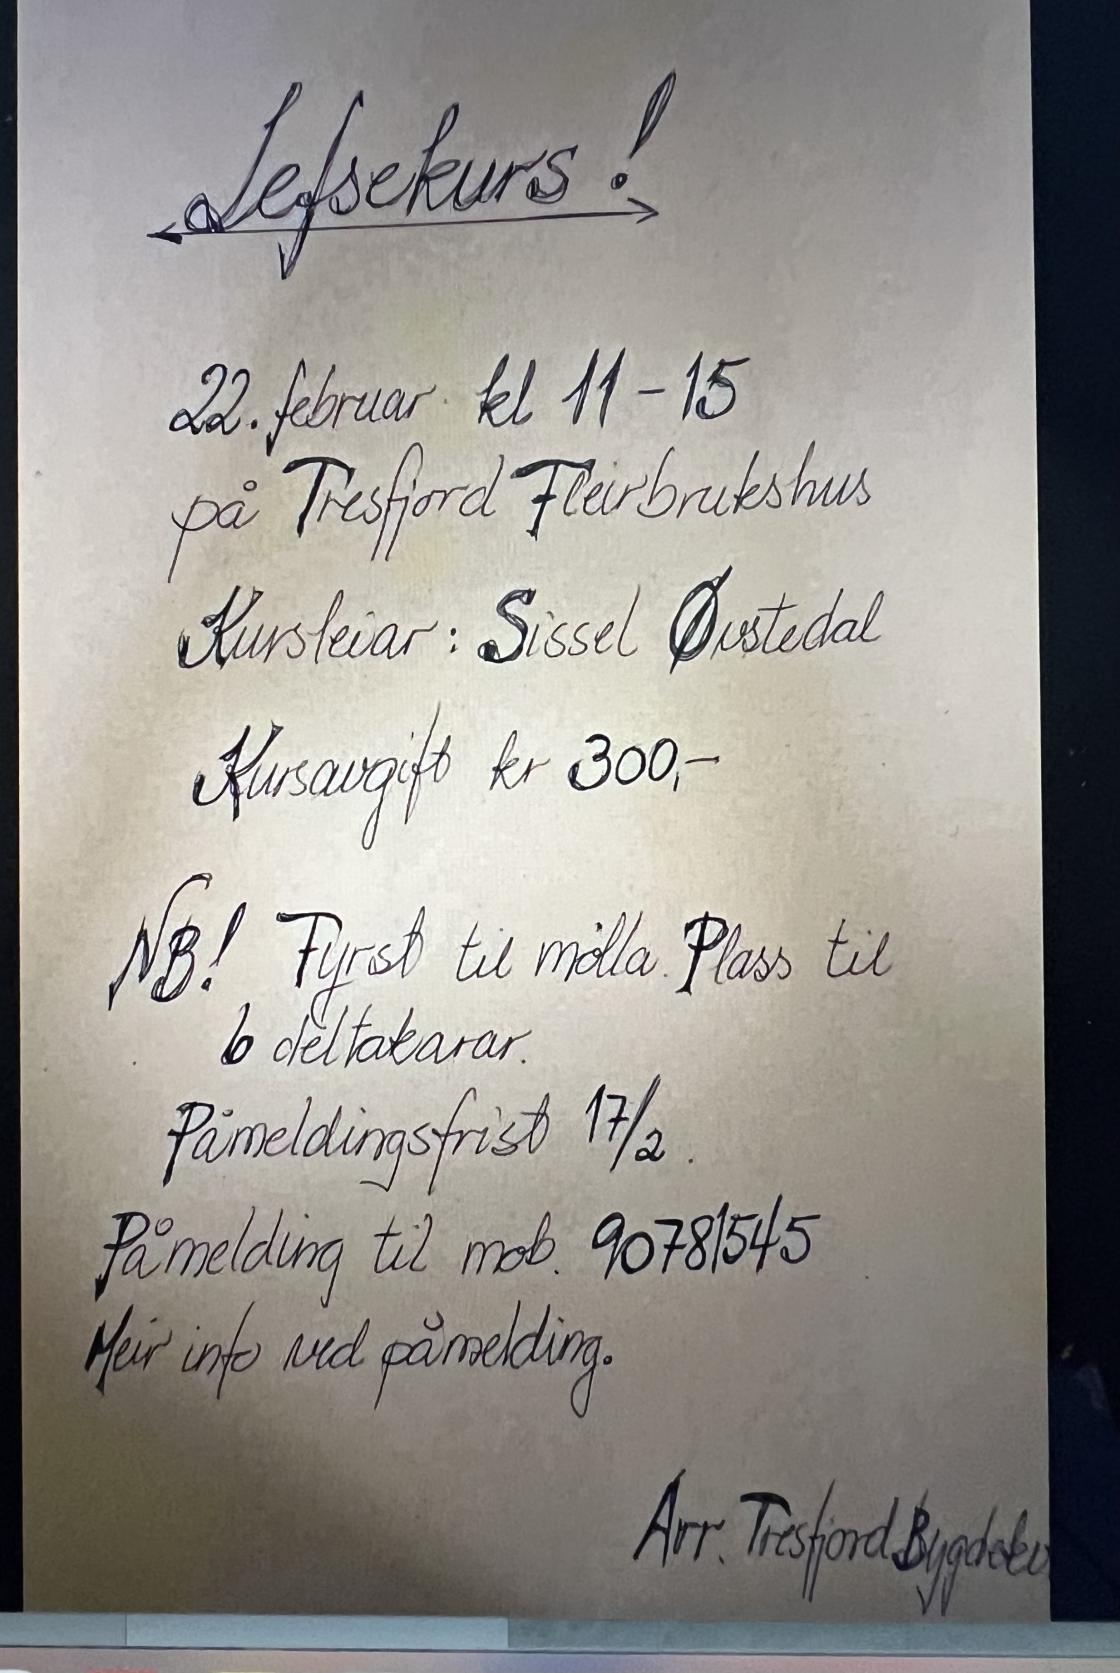 Lefsekurs!
22. februar kl 11-15
på Tresfjord Fleirbrukshus
Kursleiar: Sissel Øvstedal
Kursavgift kr 300,-
NB! Fyrst til mølla. Plass til
6 deltakarar.
Påmeldingsfrist 17/2.
Påmelding til mob. 90781545
Meir info ved påmelding.
Arr. Tresfjord